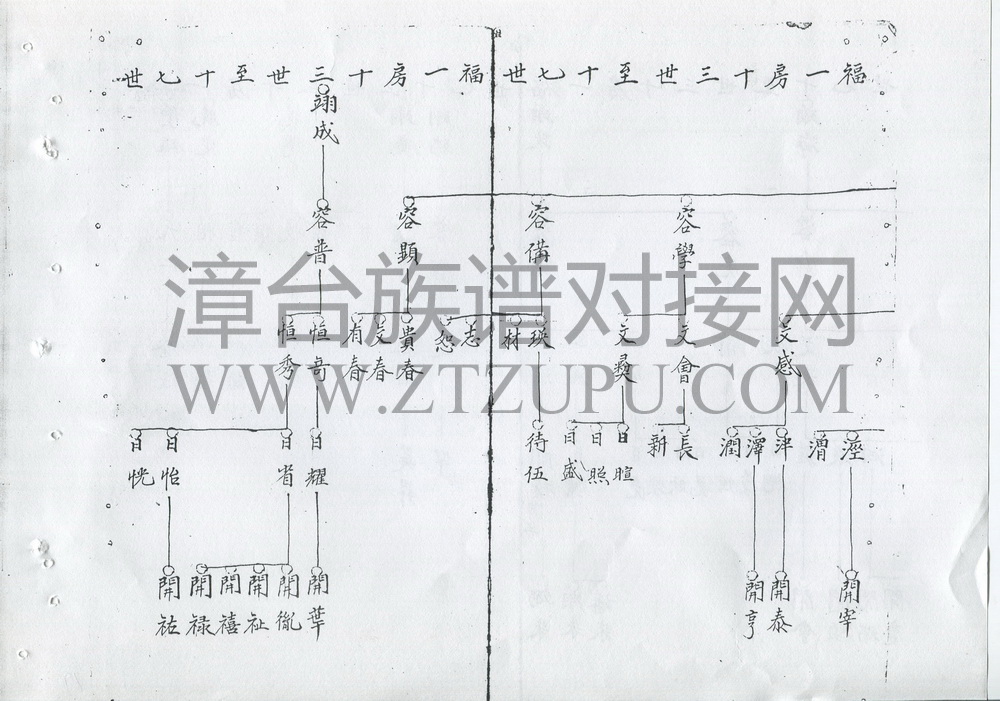 福一房十三世至十七世
福一房十三世至十七世
容學
容備
容顯
翊成
容普
文感
文會
文奠
瑛
材
志
恕
貴春
友春
有春
恒奇
恒秀
瀅
漕
泮
澤
潤
長
新
日暄
日照
日盛
待伍
日耀
日省
日怡
日恍
開宰
開泰
開亨
開葉
開胤
開祉
開禧
開禄
開祐
漳台族谱对接网
WWW.ZTZUPU.COM